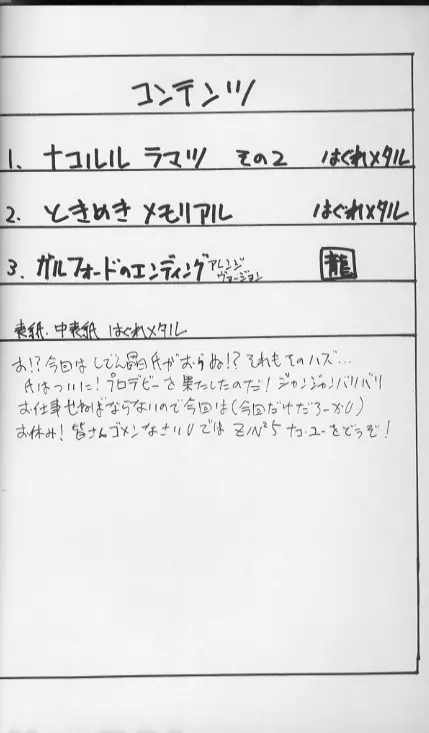 コンテンツ
1. ナコルル ラマツ その2 はぐれメタル
2. ときめき メモリアル はぐれメタル
3. ガルフォードのエンディング アレンジヴァージョン 龍
表紙・中表紙 はぐれメタル
お!? 今回は しでん晶氏がおらぬ!? それもそのハズ…
氏はついに! プロデビーを果たしたのだ! ジャンジャンバリバリ
お仕事せねばならないので今回は(今回だけだろーが)
お休み! 皆さんゴメンなさい では ナコ・ユーをどうぞ!